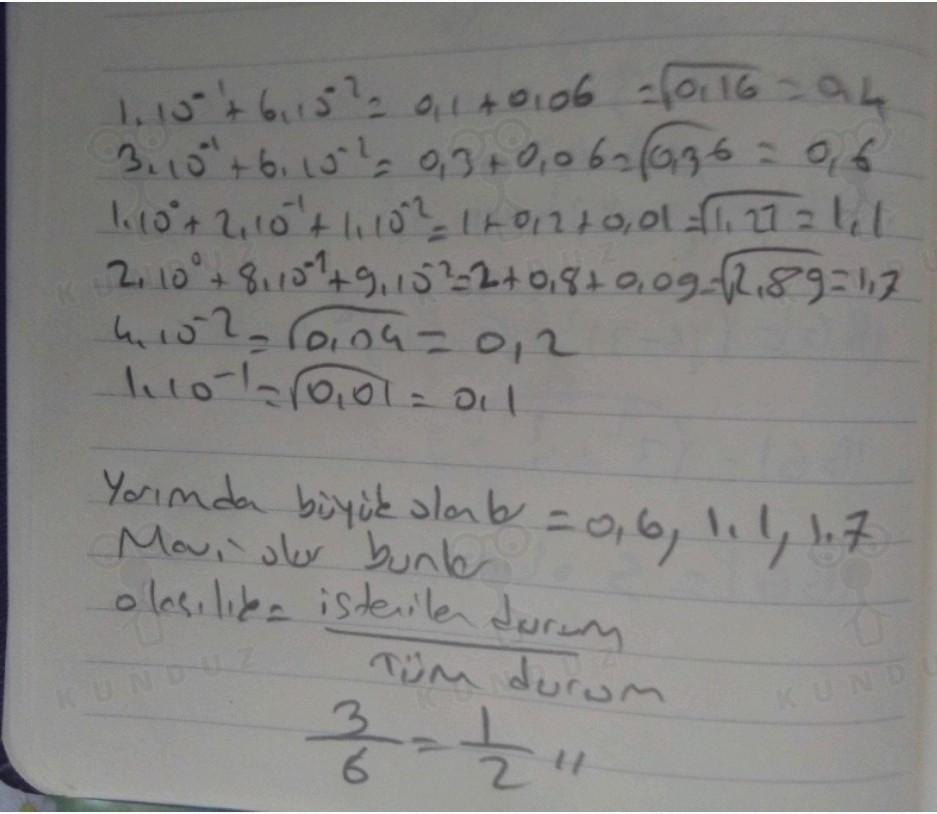 1.10⁻¹ + 6.10⁻² = 0,1 + 0,06 = √0,16 = 0,4
3.10⁻¹ + 6.10⁻² = 0,3 + 0,06 = √0,36 = 0,6
1.10⁰ + 2.10⁻¹ + 1.10⁻² = 1 + 0,2 + 0,01 = √1,21 = 1,1
2.10⁰ + 8.10⁻¹ + 9.10⁻² = 2 + 0,8 + 0,09 = √2,89 = 1,7
4.10⁻² = √0,04 = 0,2
1.10⁻¹ = √0,01 = 0,1
Yarımda büyük olanlar = 0,6, 1.1, 1.7
Mavi olur bunlar
olasılık = istenilen durum
Tüm durum
3/6 = 1/2 //
KUNDUZ
KUNDUZ
KUNDUZ
KUNDUZ